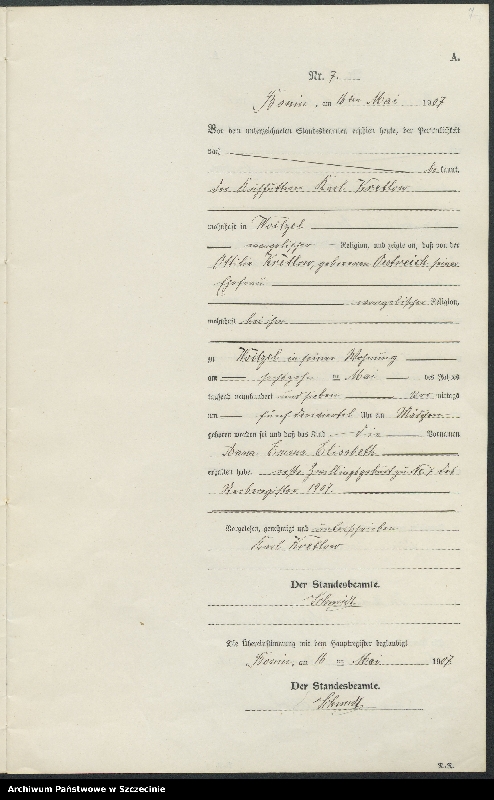 A.
Nr. 7.
am 16ten Mai 1907
Vor dem unterzeichneten Standesbeamten erschien heute, der Persönlichkeit
nach
bekannt,
der Karl Kretlow
wohnhaft in Woitzel
evangelischer Religion, und zeigte an, daß von der
Kretlow, geborenen Oestreich, seiner
Ehefrau
evangelischer Religion,
wohnhaft bei ihm
zu Woitzel in seiner Wohnung
am Mai des Jahres
tausend neunhundert und sieben Vor mittags
um fünf dreiviertel Uhr ein Mädchen
geboren worden sei und daß das Kind die Vornamen
Anna Emma Elisabeth
erhalten habe. erste Zwillingsgeburt zu No. 7 des
1907.
Vorgelesen, genehmigt und unterschrieben
Karl Kretlow
Der Standesbeamte.
Schmidt
Die Übereinstimmung mit dem Hauptregister beglaubigt
am 16 ten Mai 1907.
Der Standesbeamte.
Schmidt
Archiwum Państwowe w Szczecinie